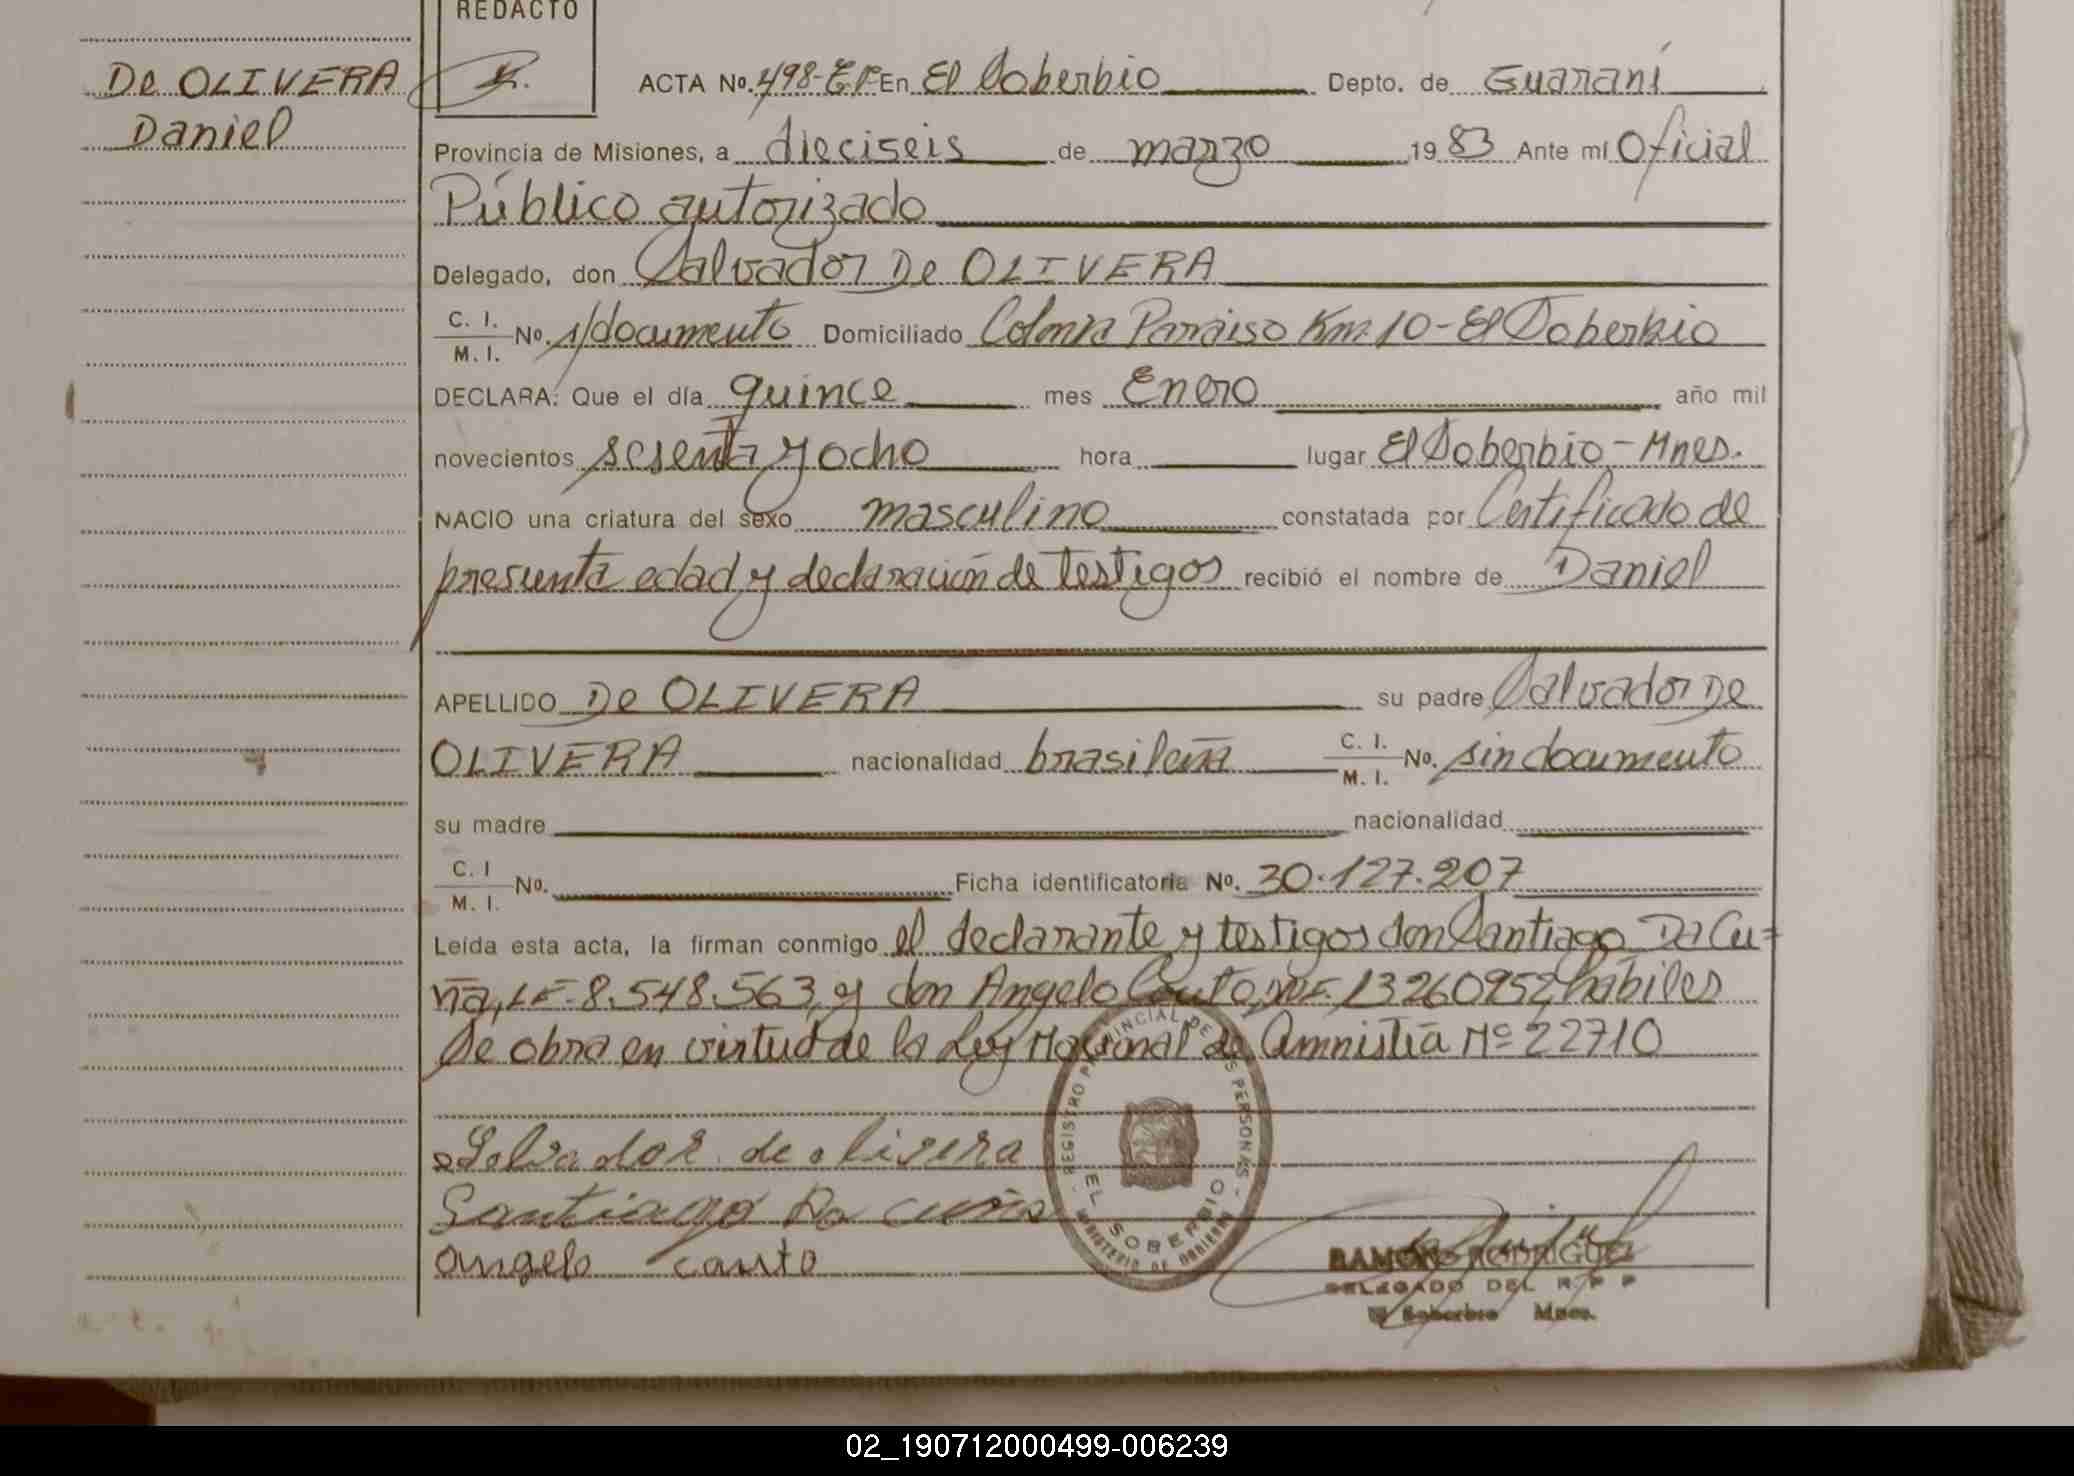 REDACTO
De OLIVERA
Daniel
ACTA No. 498-E.P. En El Soberbio Depto. de Guaraní
Provincia de Misiones, a dieciseis de marzo 1983 Ante mí Oficial
Público autorizado
Delegado, don Salvador De OLIVERA
C. I.
M. I. No. s/documento Domiciliado Colonia Paraiso Km. 10-El Soberbio
DECLARA: Que el día quince mes Enero año mil
novecientos sesenta y ocho hora lugar El Soberbio-Mnes.
NACIO una criatura del sexo masculino constatada por Certificado de
presunta edad y declaración de testigos recibió el nombre de Daniel
APELLIDO De OLIVERA su padre Salvador De
OLIVERA nacionalidad brasileña C. I.
M. I. No. sin documento
su madre nacionalidad
C. I
M. I. No. Ficha identificatoria No. 30.127.207
Leída esta acta, la firman conmigo el declarante y testigos don Santiago Da Cu=
ña, LE-8.548.563, y don Angelo Couto, 13260952, hábiles
De obra en virtud de la Ley Nacional de Amnistía Nº 22710
Salvador de olivera
Santiago Da cuña
angelo couto
REGISTRO PROVINCIAL DE LAS PERSONAS
EL SOBERBIO
MINISTERIO DE GOBIERNO
RAMON RODRIGUEZ
DELEGADO DEL R P P
El Soberbio Mnes.
02_190712000499-006239